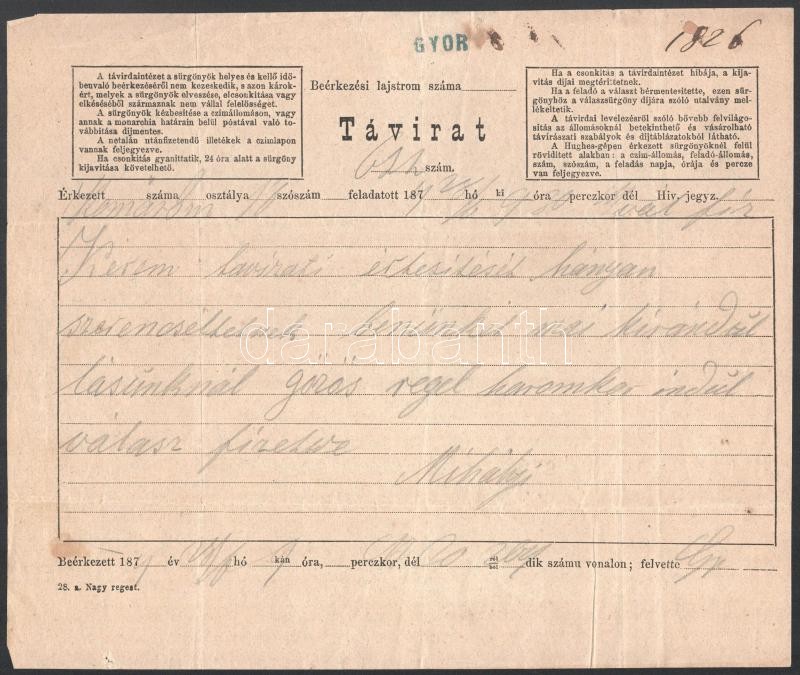 GYOR
1826
A távirdaintézet a sürgönyök helyes és kellő idő-
benvaló beérkezéséről nem kezeskedik, s azon károk-
ért, melyek a sürgönyök elveszése, elcsonkitása vagy
elkéséséből származnak nem vállal felelősséget.
A sürgönyök kézbesitése a czimállomáson, vagy
annak a monarchia határain belül póstával való to-
vábbitása díjmentes.
A netalán utánfizetendő illetékek a czimlapon
vannak feljegyezve.
Ha csonkitás gyanittatik, 24 óra alatt a sürgöny
kijavitása követelhető.
Beérkezési lajstrom száma
Távirat
szám.
Ha a csonkitás a távirdaintézet hibája, a kija-
vitás dijai megtérittetnek.
Ha a feladó a választ bérmentesitette, ezen sür-
gönyhöz a válaszsürgöny dijára szóló utalvány mel-
lékeltetik.
A távirdai levelezésről szóló bővebb felvilágo-
sitás az állomásoknál betekinthető és vásárolható
távirászati szabályok és díjtáblázatokból látható.
A Hughes-gépen érkezett sürgönyöknél felül
röviditett alakban: a czim-állomás, feladó-állomás,
szám, szószám, a feladás napja, órája és percze
van feljegyezve.
Érkezett száma osztálya szószám feladatott 187 hó ki óra perczkor dél Hiv. jegyz.
Komárom
Kérem távirati értesitését hányan
szerencséltetnek bennünket mai kirándúl
lásunknál gőzös regel háromkor indul
válasz fizetve
Mihályi
Beérkezett 187 év hó kán óra, perczkor, dél ról ből dik számu vonalon; felvette
28. a. Nagy regest.
darabanth